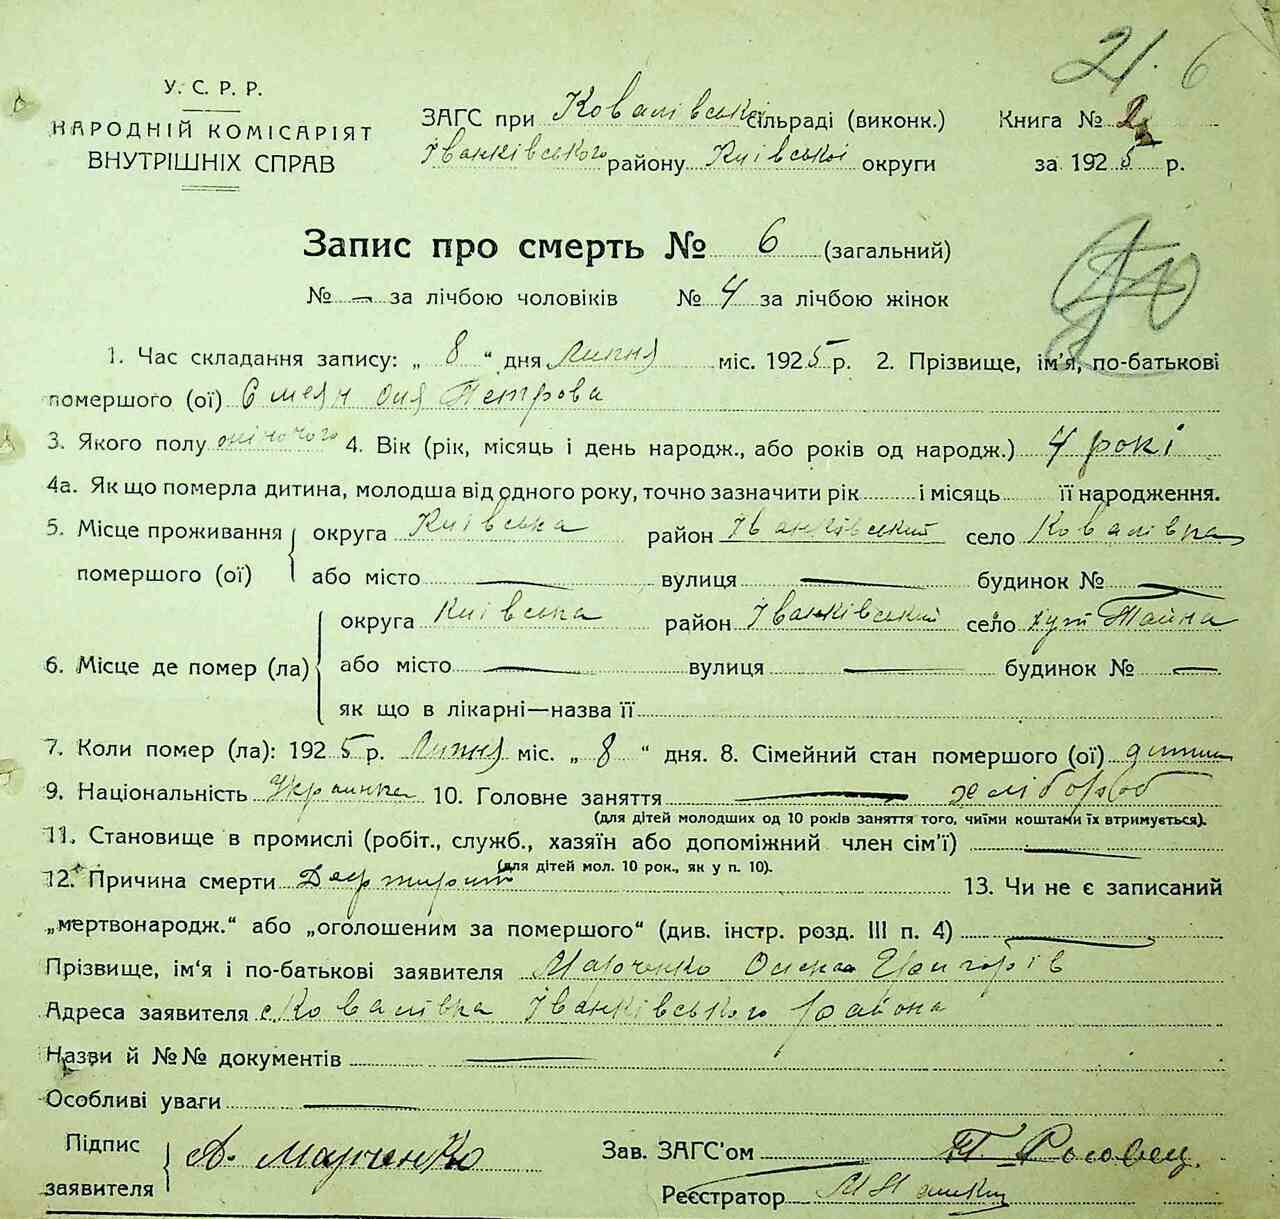 21. 6
У. С. Р. Р.
НАРОДНІЙ КОМІСАРІЯТ
ВНУТРІШНІХ СПРАВ
ЗАГС при Ковалівській сільраді (виконк.)
Іванківського району Київської округи
Книга № 2
за 1925 р.
Запис про смерть № 6 (загальний)
№ — за лічбою чоловіків № 4 за лічбою жінок
1. Час складання запису: „ 8 “ дня Липня міс. 1925 р. 2. Прізвище, ім'я, по-батькові
помершого (ої) Петрова
3. Якого полу жіночого 4. Вік (рік, місяць і день народж., або років од народж.) 4 рокі
4а. Як що померла дитина, молодша від одного року, точно зазначити рік і місяць її народження.
5. Місце проживання помершого (ої) округа Київська район Іванківський село Ковалівка
або місто — вулиця — будинок № —
6. Місце де помер (ла) округа Київська район Іванківський село хут Тайна
або місто — вулиця — будинок № —
як що в лікарні—назва її
7. Коли помер (ла): 1925 р. Липня міс. „ 8 “ дня. 8. Сімейний стан помершого (ої) дитина
9. Національність Украинка 10. Головне заняття — хлібороб
(для дітей молодших од 10 років заняття того, чиїми коштами їх втримується).
11. Становище в промислі (робіт., служб., хазяїн або допоміжний член сім'ї) —
(для дітей мол. 10 рок., як у п. 10).
12. Причина смерти Дефтирит 13. Чи не є записаний
„мертвонародж.“ або „оголошеним за помершого“ (див. інстр. розд. III п. 4) —
Прізвище, ім'я і по-батькові заявителя Марченко Григорів
Адреса заявителя с. Ковалівка Іванківського района
Назви й №№ документів —
Особливі уваги —
Підпис заявителя А. Марченко
Зав. ЗАГС'ом П. Росовец.
Реєстратор